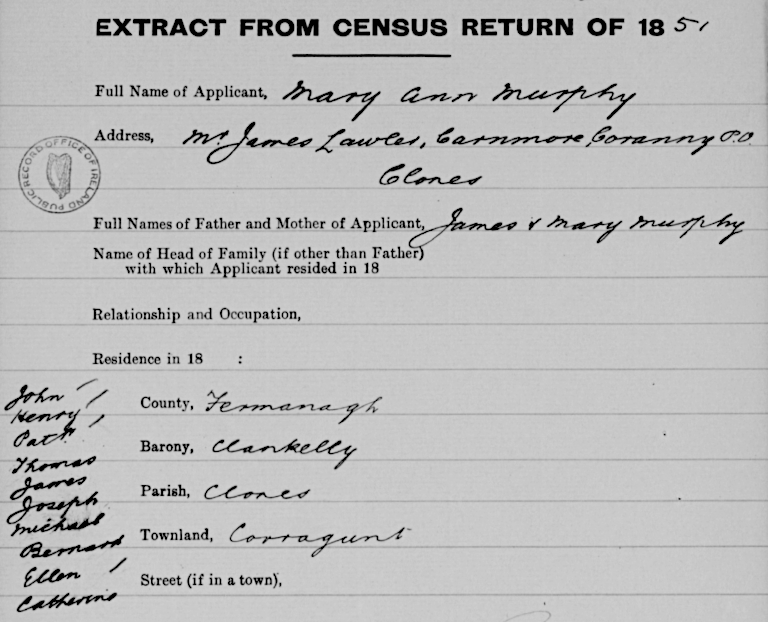 EXTRACT FROM CENSUS RETURN OF 1851
Full Name of Applicant, Mary Ann Murphy
Address, Mr James Lawler, Carnmore, Coranny P.O.
Clones
PUBLIC RECORD OFFICE OF IRELAND
Full Names of Father and Mother of Applicant, James & Mary Murphy
Name of Head of Family (if other than Father)
with which Applicant resided in 18
Relationship and Occupation,
Residence in 18 :
John
Henry
Patk
Thomas
James
Joseph
Michael
Bernard
Ellen
Catherine
County, Fermanagh
Barony, Clankelly
Parish, Clones
Townland, Corragunt
Street (if in a town),